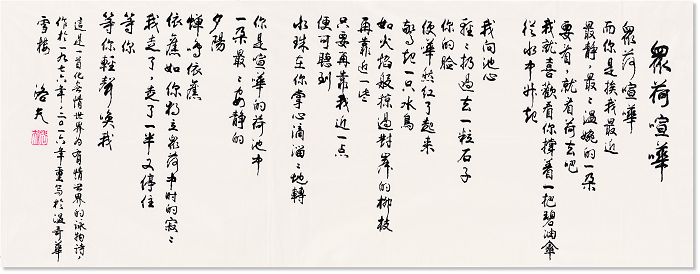 眾荷喧嘩
眾荷喧嘩
而你是挨我最近
最靜,最々溫婉的一朵
要看,就看荷去吧
我就喜歡看你撐着一把碧油傘
從水中升起
我向池心
輕々扔過去一粒石子
你的臉
便嘩然紅了起來
驚起一只水鳥
如火焰般掠過對岸的柳枝
再靠近一些
只要再靠我近一点
便可聽到
水珠在你掌心滴溜々地轉
你是喧嘩的荷池中
一朵最々安靜的
夕陽
蟬鳴依舊
依舊如你獨立眾荷中時的寂々
我走了,走了一半又停住
等你
等你輕聲喚我
這是一首化無情世界為有情世界的詠物詩,
作於一九七六年,二〇一六年重寫於溫哥華
雪樓 洛夫